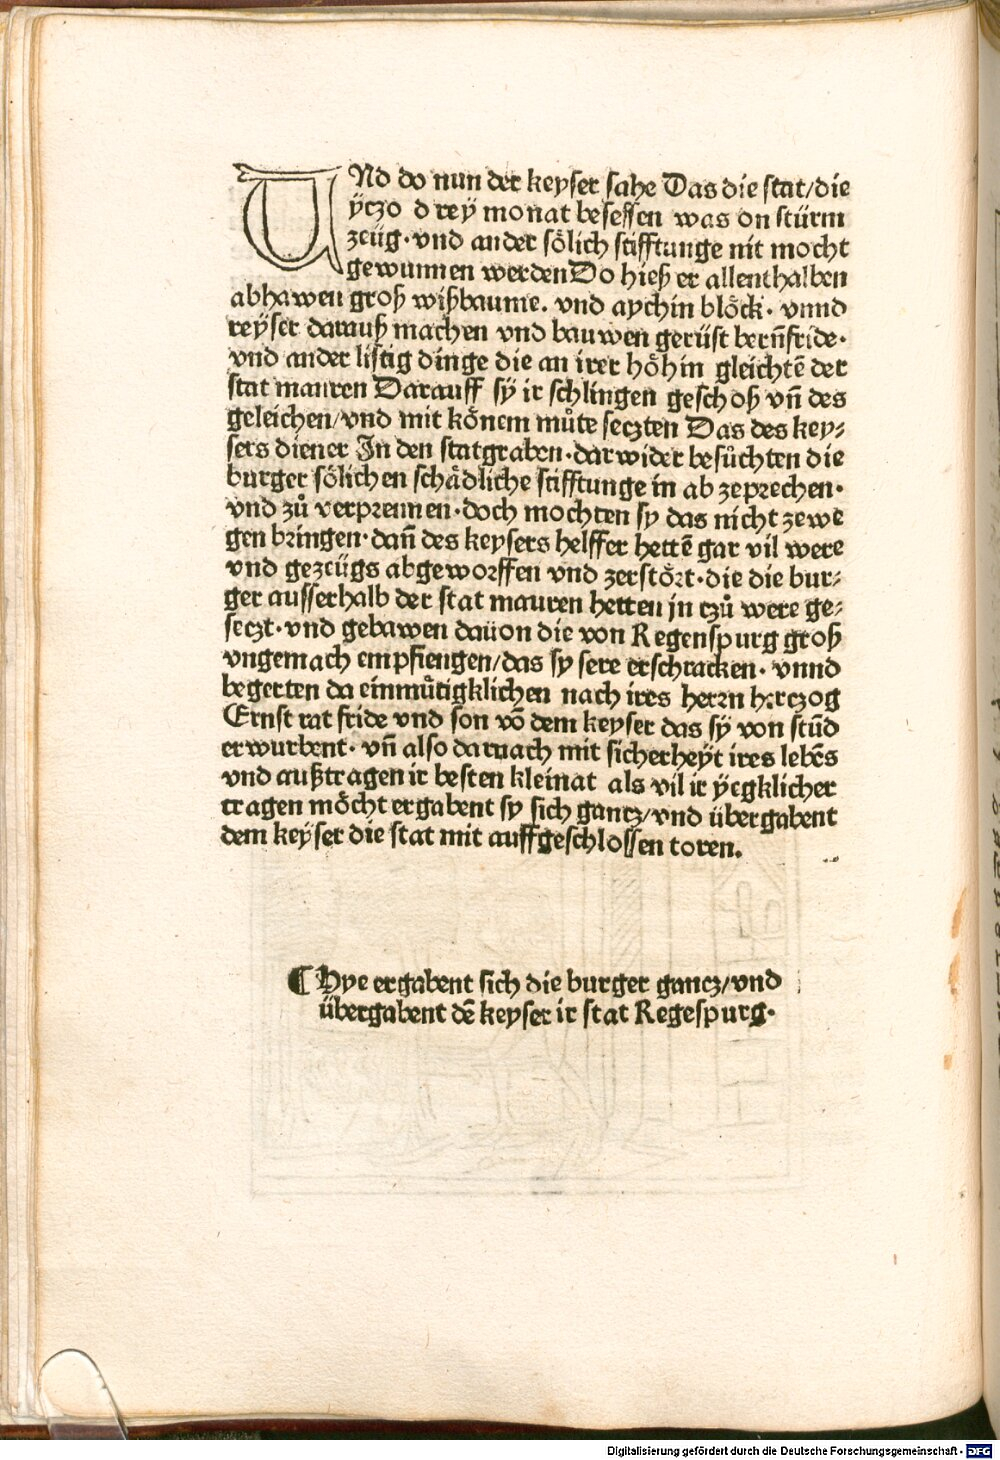 UNd do nun der keyser sahe Das die stat/die
ÿczo drey monat besessen was on stürm
zeüg·vnd ander sölich stifftunge nit mocht
gewunnen werden Do hieß er allenthalben
abhawen groß wißbaume. vnd aychin blöck· vnnd
reyser darauß machen vnd bauwen gerüst bern̄fride·
vnd ander listig dinge die an irer höhin gleichtē der
stat mauren Darauff sÿ ir schlingen geschoß vn̄ des
geleichen/vnd mit könem můte seczten Das des key⸗
sers diener In den statgraben·darwider besůchten die
burger sölichen schädliche stifftunge in ab zeprechen·
vnd zů verprennen·doch mochten sy das nicht zewe
gen bringen·dan̄ des keysers helffer hettē gar vil were
vnd gezeügs abgeworffen vnd zerstört·die die bur⸗
ger ausserhalb der stat mauren hetten jn czů were ge⸗
seczt·vnd gebawen dauon die von Regenspurg groß
vngemach empfiengen/das sy sere erschracken· vnnd
begerten da einmůtigklichen nach ires herrn herczog
Ernst rat fride vnd son vō dem keyser das sÿ von stūd
erwurbent· vn̄ also darnach mit sicherheÿt ires lebēs
vnd außtragen ir besten kleinat als vil ir ÿegklicher
tragen möcht ergabent sy sich gancz/vnd übergabent
dem keyser die stat mit auffgeschlossen toren.
¶ Hye ergabent sich die burger gancz/vnd
übergabent dē keyser ir stat Regespurg·
Digitalisierung gefördert durch die Deutsche Forschungsgemeinschaft - DFG